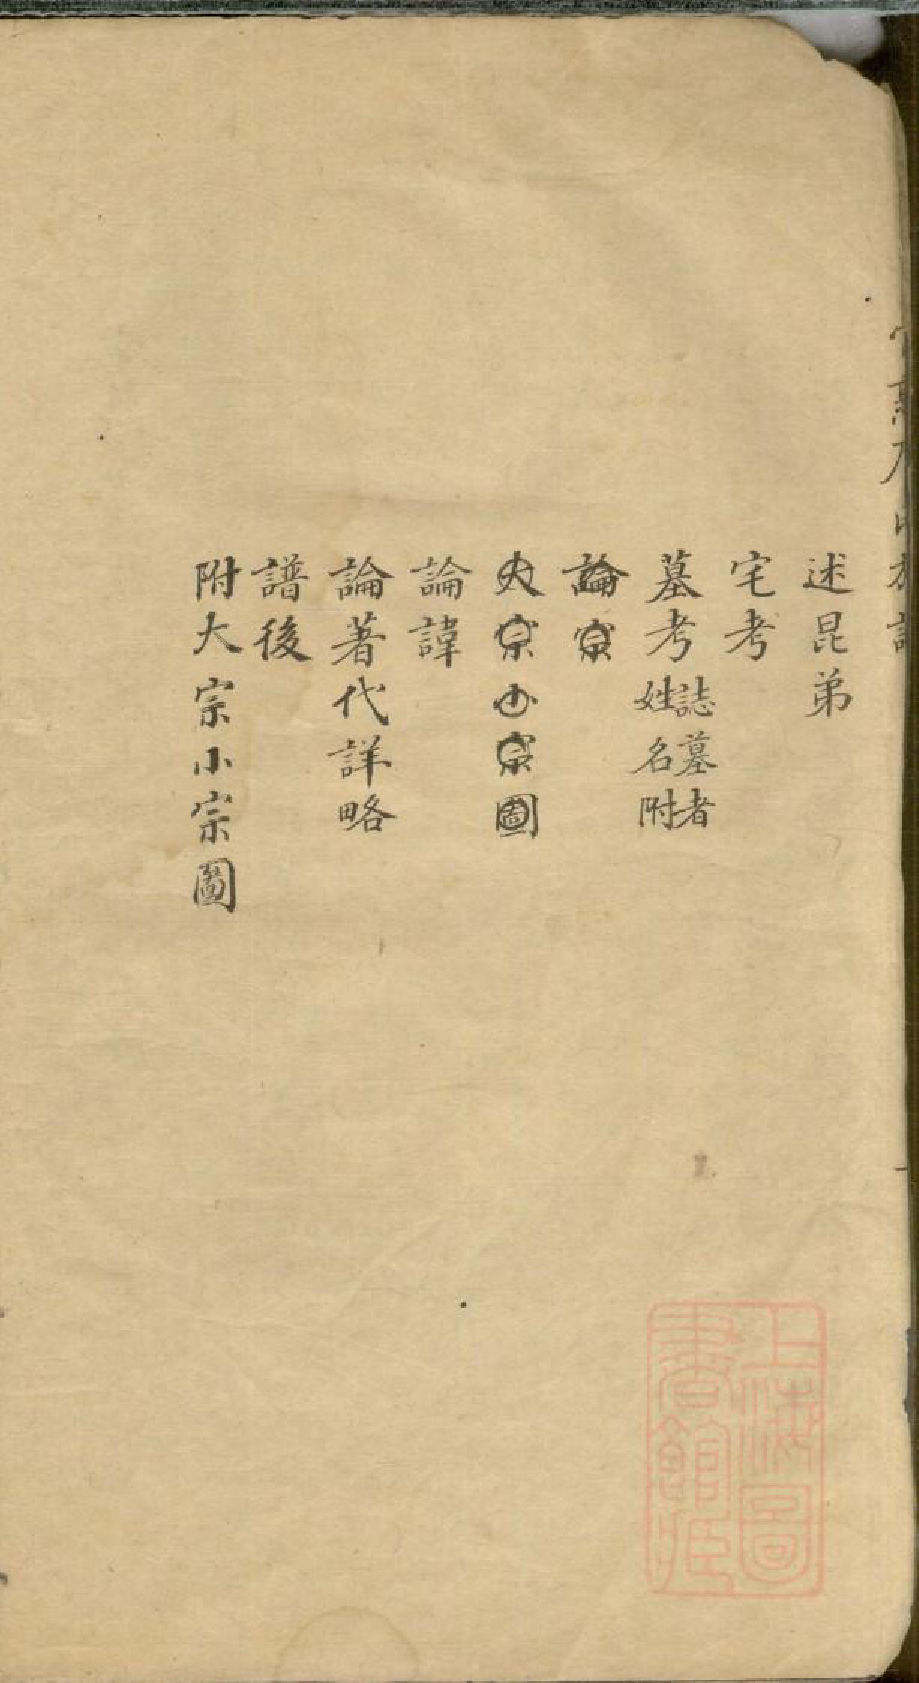 述昆弟
宅考
墓考 誌墓者姓名附
論宗
大宗小宗圖
論諱
論著代詳略
譜後
附大宗小宗圖
上海圖書館藏